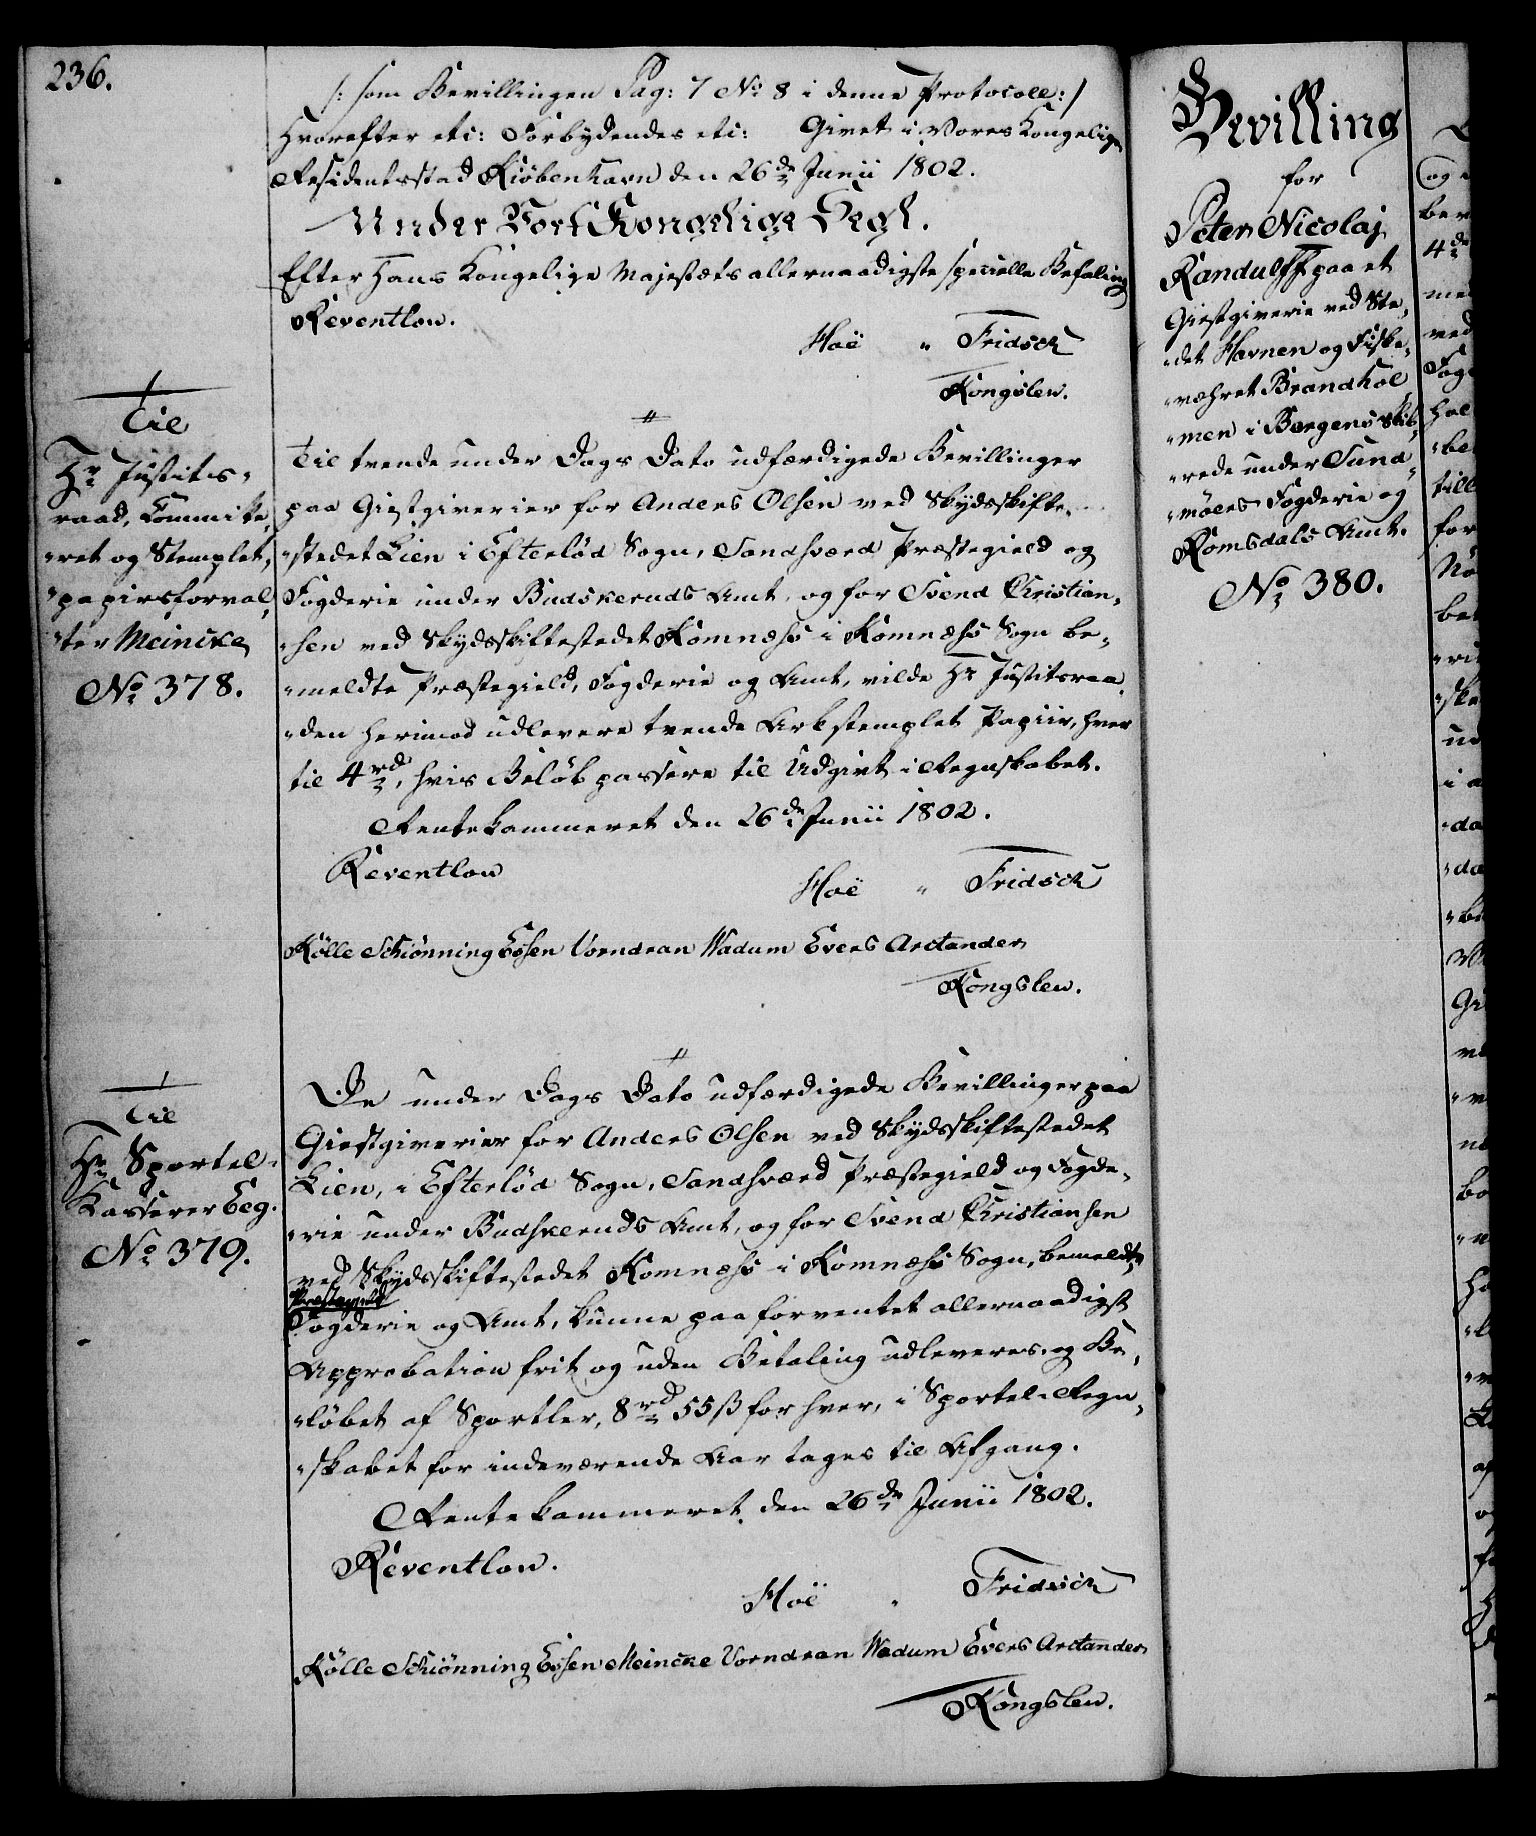 236.
/: som Bevillingen Pag: 7 No 8 i denne Protocoll :/
Hvorefter etc: Forbydendes etc: Givet i Vores Kongelige
Residentsstad Kiöbenhavn den 26de Junii 1802.
Under Vort Kongelige Segl.
Efter Hans Kongelige Majestæts allernaadigste specielle Befaling
Reventlow.
Hoë " Fridsch
Kongslew.
Til
Hr Justits-
raad, Committe-
"ret og Stemplet,
"papirsforval,
"ter Meincke
No 378.
Til tvende under Dags Dato udfærdigede Bevillinger
paa Giestgiverier for Anders Olsen ved Skydsskifte,
"stedet Lien i Efterlöd Sogn, Sandsværd Præstegield og
Fogderie under Budskeruds Amt, og for Svend Christian,
"sen ved Skydsskiftestedet Komnæhs i Komnæhs Sogn be,
"meldte Præstegield, Fogderie og Amt, vilde Hr Justitsraa,
"den herimod udlevere tvende Ark stemplet Papiir, hver
til 4 rd, hvis Beløb passere til Udgivt i Regnskabet.
Rentekammeret den 26de Junii 1802.
Reventlow
Hoë " Fridsch
Kölle Schiönning Eosen Vorndran Wadum Evers Arctander
Kongslew.
Til
Hr Sportel-
Kasserer Eeg.
No 379.
De under Dags Dato udfærdigede Bevillinger paa
Giestgiverier for Anders Olsen ved Skydsskiftestedet
Lien, i Efterlöd Sogn, Sandsværd Præstegield og Fogde,
"rie under Budskeruds Amt, og for Svend Christiansen
ved Skydsskiftestedet Komnæhs i Komnæhs Sogn, bemeldte
Præstegield
Fogderie og Amt, kunne paa forventet allernaadigst
Approbation frit og uden Betaling udleveres og Be,
"löbet af Sportler, 8 rd 55 ß for hver, i Sportel-Regn,
"skabet for indeværende Aar tages til Afgang.
Rentekammeret den 26de Junii 1802.
Reventlow.
Hoë " Fridsch
Kölle Schiönning Eosen Meincke Vorndran Wadum Evers Arctander
Kongslew.
Bevilling
for
Peter Nicolaj
Randulff paa et
Giestgiverie ved Ste,
"det Havnen og Fiske,
"væhret Brandhol
"men i Bergens Skib,
"rede under Sund,
"möers Fogderie og
Romsdals Amt.
No 380.